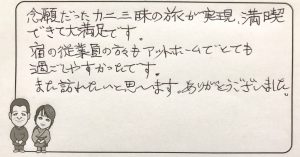 念願だったカニ三昧の旅が実現、満喫
できて大満足です。
宿の従業員の方々もアットホームでとても
過ごしやすかったです。
また訪れたいと思います。ありがとうございました。